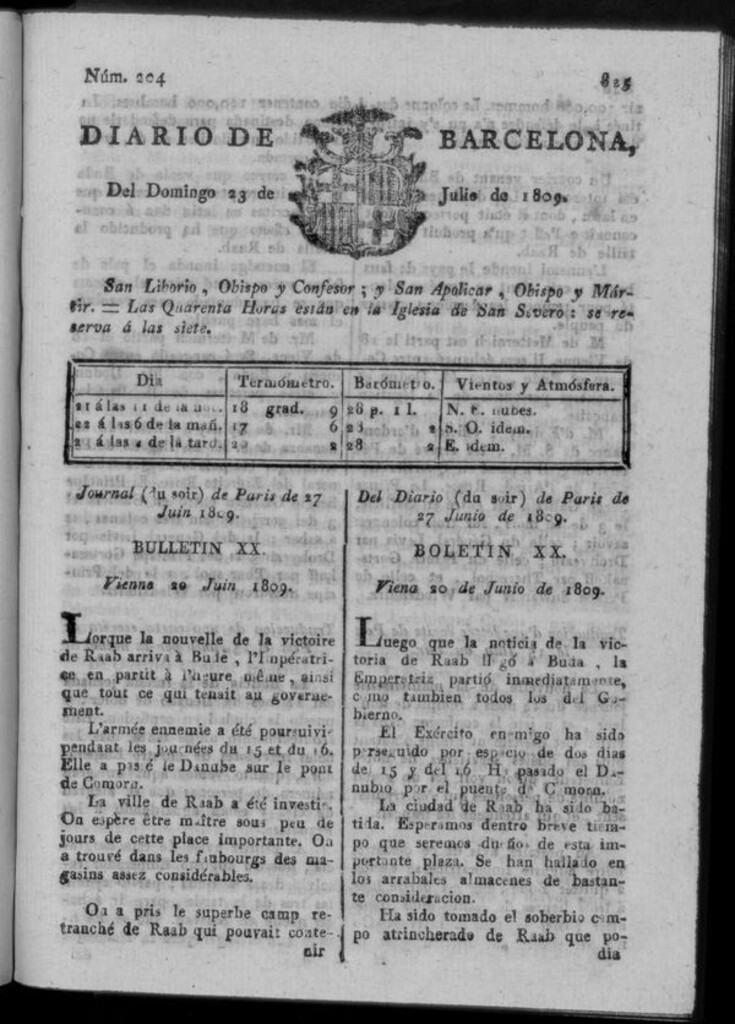 Núm. 204 825
DIARIO DE BARCELONA,
Del Domingo 23 de Julio de 1809.
San Liborio, Obispo y Confesor; y San Apolicar, Obispo y Már-
tir. = Las Quarenta Horas están en la Iglesia de San Severo: se re-
serva á las siete.
Dia Termómetro. Barómetro. Vientos y Atmósfera.
21 á las 11 de la noc. 18 grad. 9 28 p. 1 l. N. E. nubes.
22 á las 6 de la mañ. 17 6 28 2 S. O. idem.
2 á las 2 de la tard. 20 2 28 2 E. idem.
Journal (du soir) de Paris de 27
Juin 1809.
BULLETIN XX.
Vienne 20 Juin 1809.
Lorque la nouvelle de la victoire
de Raab arriva à Bude, l'Impératri-
ce en partit à l'heure même, ainsi
que tout ce qui tenait au governe-
ment.
L'armée ennemie a été poursuivi-
pendant les journées du 15 et du 16.
Elle a passé le Danube sur le pont
de Comorn.
La ville de Raab a été investie.
On espère être maître sous peu de
jours de cette place importante. On
a trouvé dans les faubourgs des ma-
gasins assez considérables.
On a pris le superbe camp re-
tranché de Raab qui pouvait conte-
nir
Del Diario (du soir) de Paris de
27 Junio de 1809.
BOLETIN XX.
Viena 20 de Junio de 1809.
Luego que la noticia de la vic-
toria de Raab llegó á Buda, la
Emperatriz partió inmediatamente,
como tambien todos los del Go-
bierno.
El Exército enemigo ha sido
perseguido por espacio de dos dias
de 15 y del 16. Ha pasado el Da-
nubio por el puente de Comorn.
La ciudad de Raab ha sido ba-
tida. Esperamos dentro breve tiem-
po que seremos dueños de esta im-
portante plaza. Se han hallado en
los arrabales almacenes de bastan-
te consideracion.
Ha sido tomado el soberbio cam-
po atrincherado de Raab que po-
dia